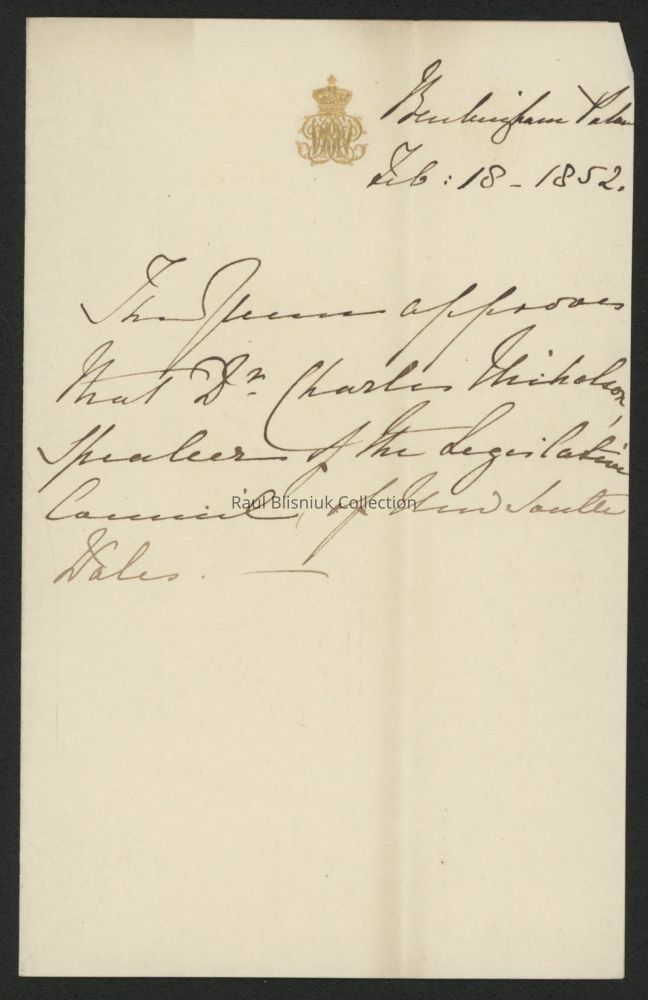 Buckingham Palace
Feb: 18 - 1852.
The Queen approves
that Dr. Charles Nicholson,
Speaker of the Legislative
Council, of New South
Wales. —
Raul Blisniuk Collection